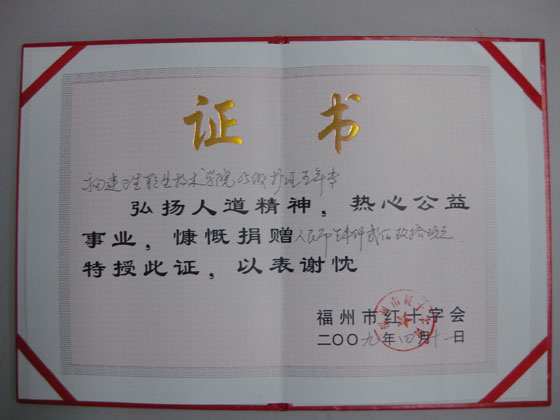 证书
生职业技术学院 级护理五年专
弘扬人道精神，热心公益
事业，慷慨捐赠人民币 仟贰佰 拾 元
特授此证，以表谢忱
福州市红十字会
二〇〇九年四月十一日